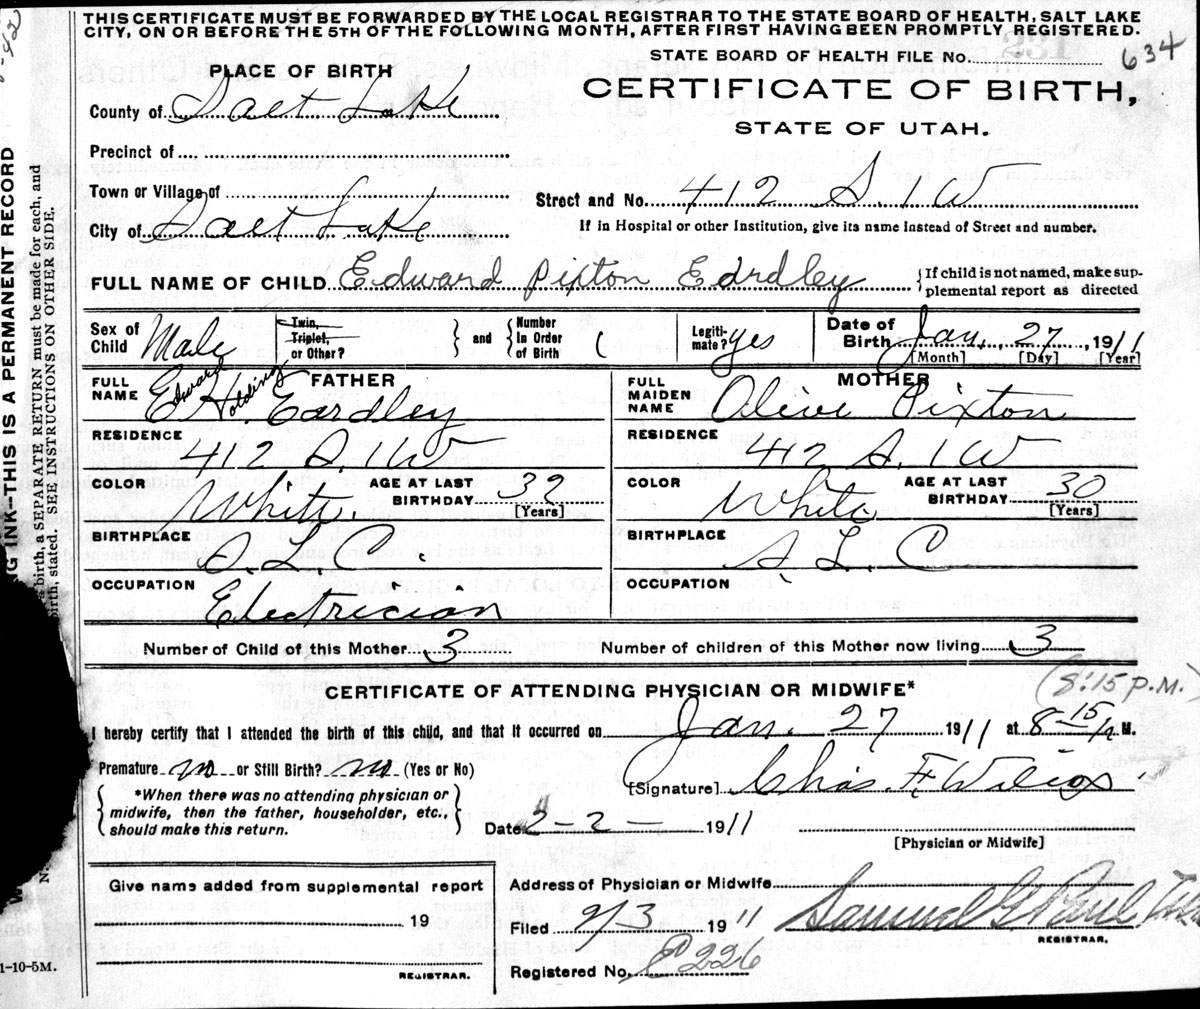 THIS CERTIFICATE MUST BE FORWARDED BY THE LOCAL REGISTRAR TO THE STATE BOARD OF HEALTH, SALT LAKE
CITY, ON OR BEFORE THE 5TH OF THE FOLLOWING MONTH, AFTER FIRST HAVING BEEN PROMPTLY REGISTERED.
STATE BOARD OF HEALTH FILE No. 634
PLACE OF BIRTH
CERTIFICATE OF BIRTH,
County of Salt Lake
STATE OF UTAH.
Precinct of
Town or Village of
Street and No. 412 S. 1 W
City of Salt Lake
If in Hospital or other Institution, give its name instead of Street and number.
FULL NAME OF CHILD Edward Pixton Eardley
If child is not named, make sup-
plemental report as directed
Sex of Child Male
Twin, Triplet, or Other?
and
Number in Order of Birth
Legiti-mate? yes
Date of Birth Jan. 27, 1911
[Month] [Day] [Year]
FULL NAME FATHER Edward Holding Eardley
FULL MAIDEN NAME MOTHER Olive Pixton
RESIDENCE 412 S. 1 W
RESIDENCE 412 S. 1 W
COLOR White. AGE AT LAST BIRTHDAY 32 [Years]
COLOR White AGE AT LAST BIRTHDAY 30 [Years]
BIRTHPLACE S. L. C.
BIRTHPLACE S. L. C
OCCUPATION Electrician
OCCUPATION
Number of Child of this Mother 3
Number of children of this Mother now living 3
CERTIFICATE OF ATTENDING PHYSICIAN OR MIDWIFE*
(8:15 P.M.)
I hereby certify that I attended the birth of this child, and that it occurred on Jan. 27 1911 at 8 15 M.
Premature no or Still Birth? no (Yes or No)
[Signature] Chas. F. Wilcox
*When there was no attending physician or
midwife, then the father, householder, etc.,
should make this return.
Date 2-2- 1911
[Physician or Midwife]
Give name added from supplemental report
Address of Physician or Midwife
19
Filed 2/3 1911 Samuel G. Paul
REGISTRAR.
REGISTRAR.
Registered No. 226
1-10-5M.
G INK--THIS IS A PERMANENT RECORD
birth, a SEPARATE RETURN must be made for each, and
birth stated. SEE INSTRUCTIONS ON OTHER SIDE.